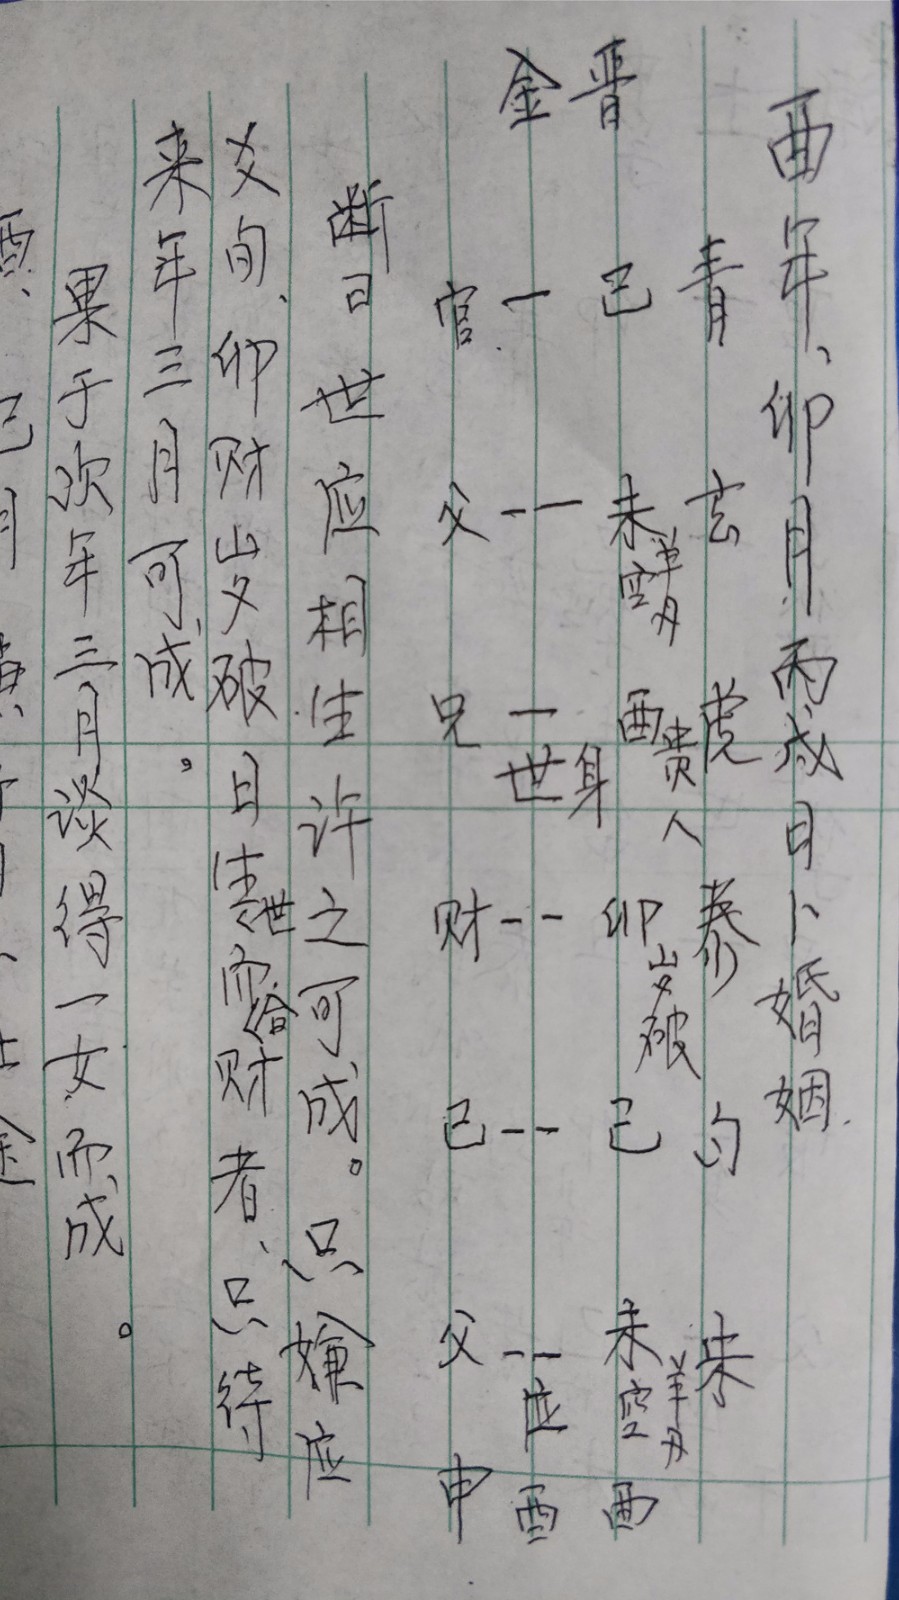 酉年、卯月丙戌日卜婚姻.
青 玄 虎 泰 勾 朱
晋 巳 未 空 羊刃 酉 贵人 身 卯 岁破 巳 未 空 羊刃 酉
金 一 -- 一 世 -- -- -- 应 酉
官 父 兄 财 己 父 申
断曰 世应相生许之可成。只嫌应
爻旬、卯财岁破日生世而合财者、只待
来年三月可成。
果于次年三月谈得一女而成。